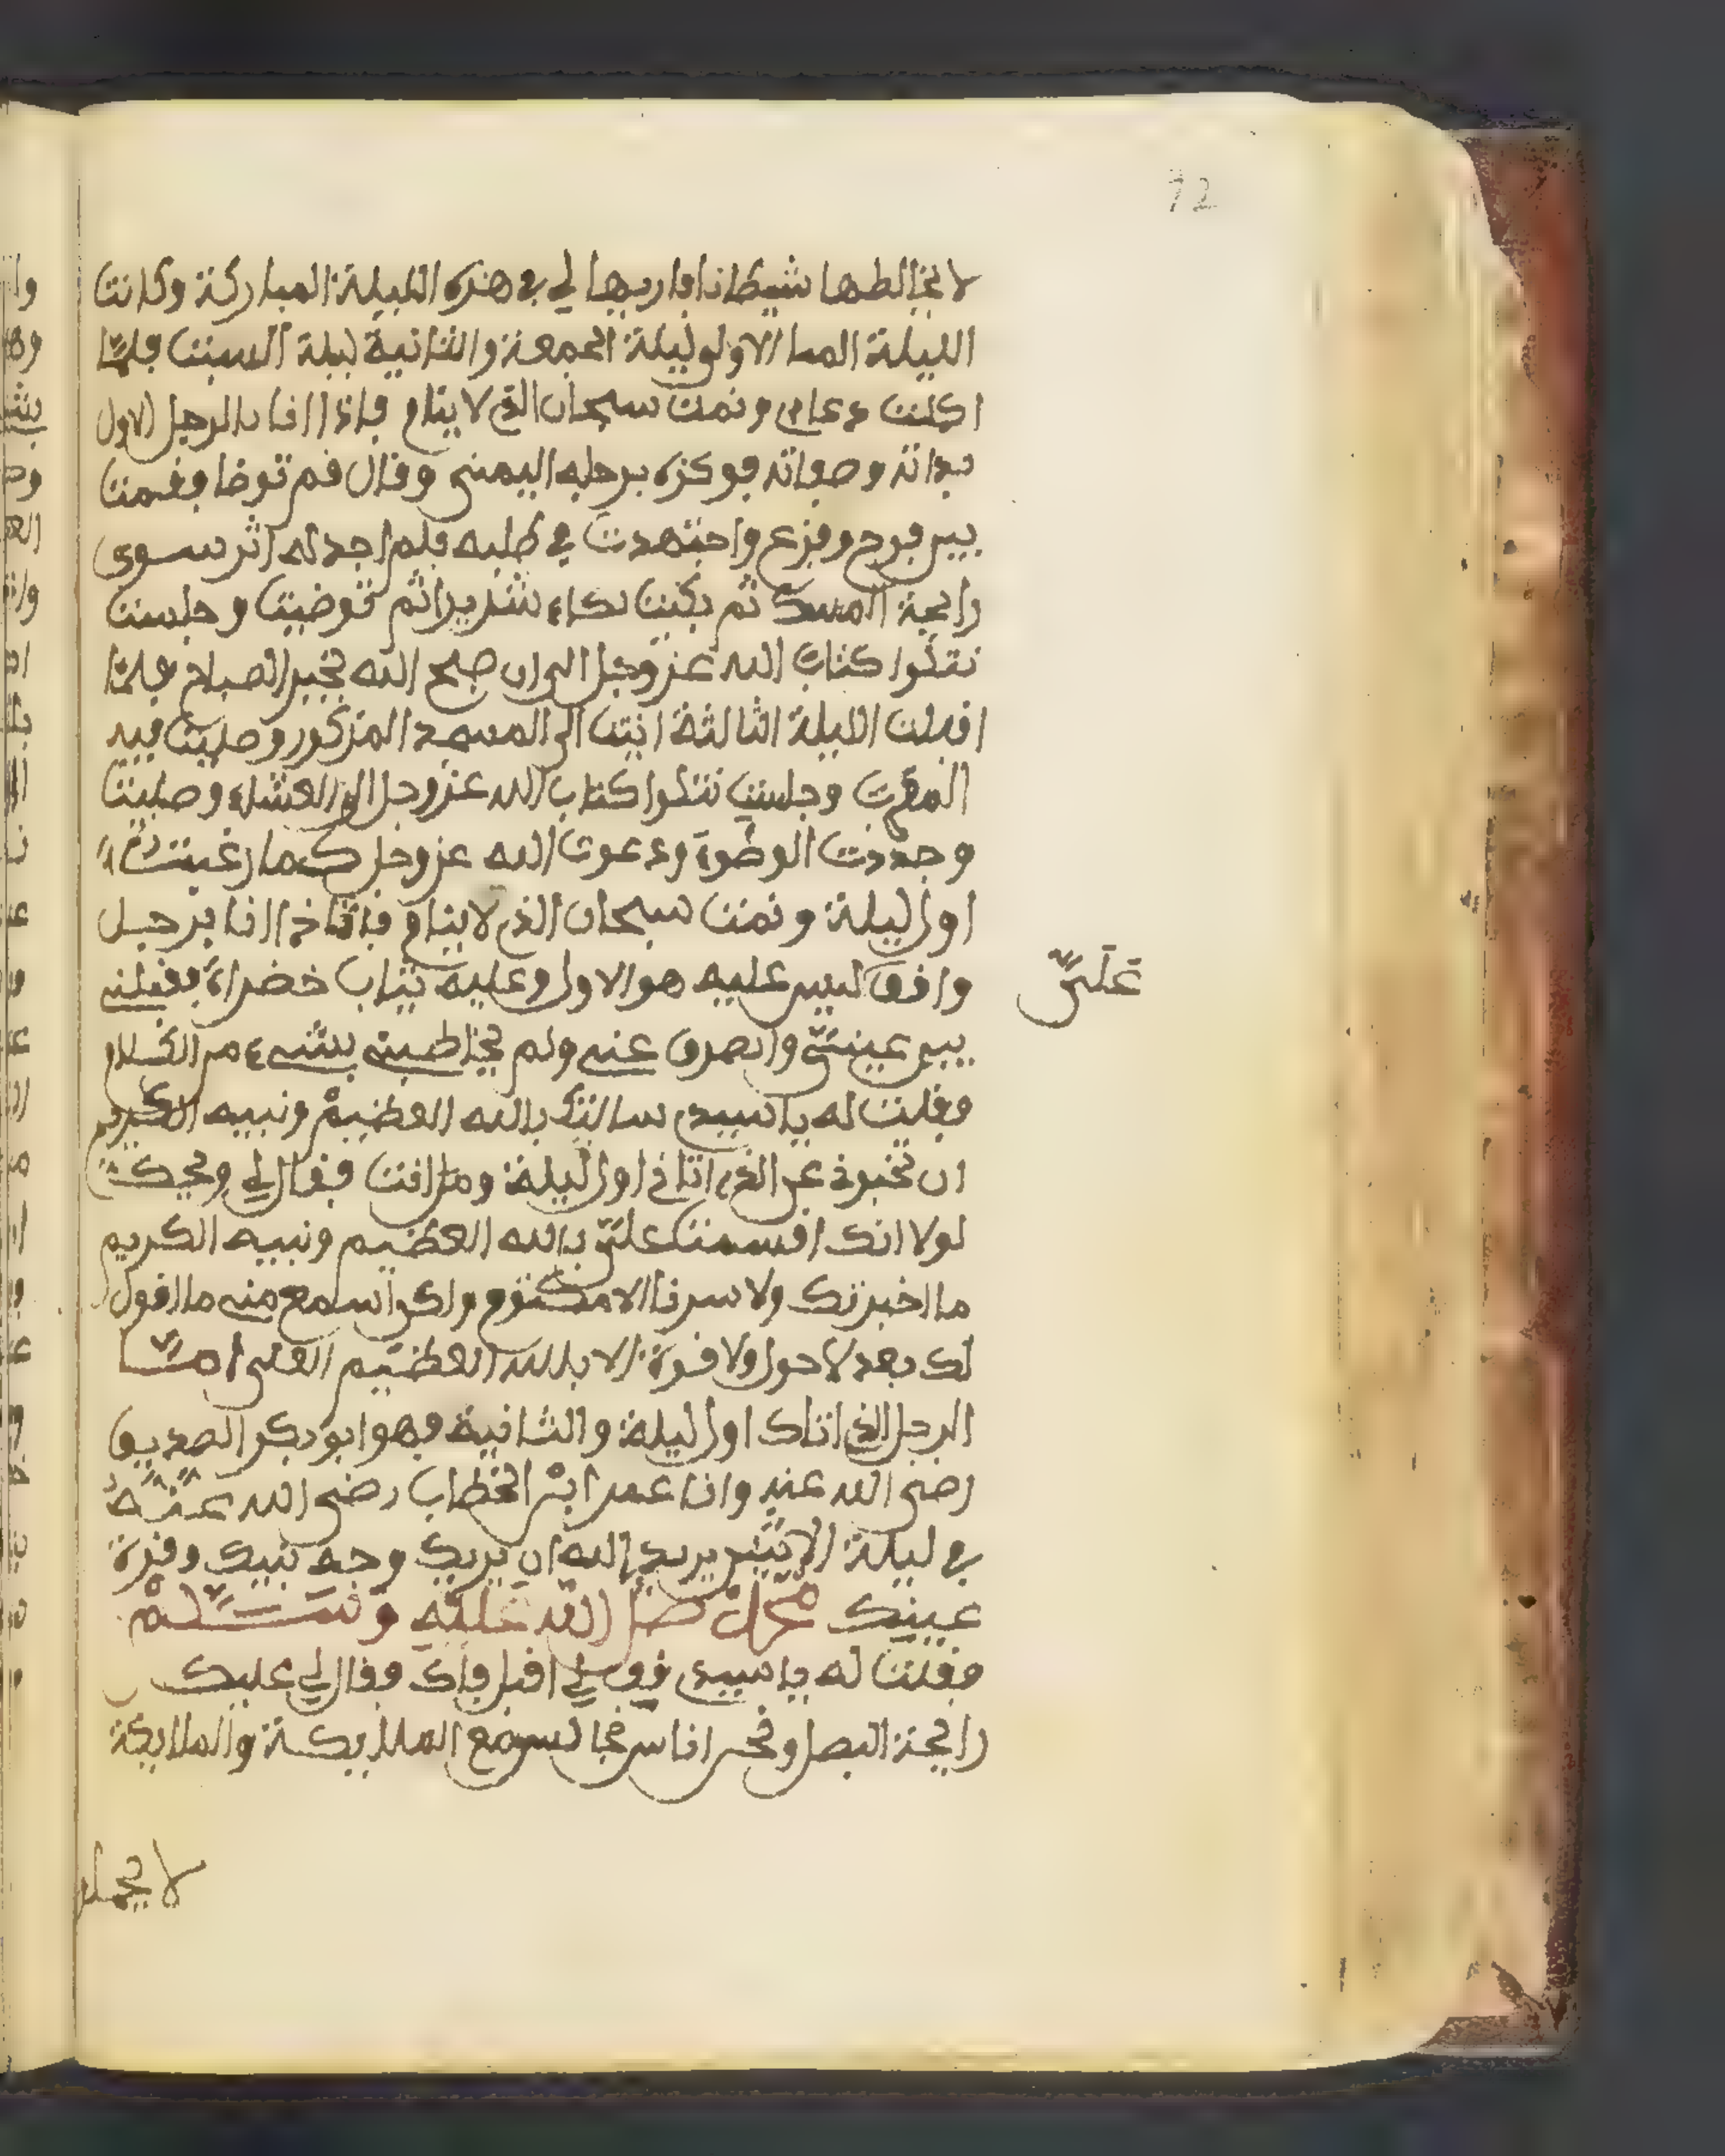 72
لا يخالطها شيطانا فاريها لي في هذه الليلة المباركة وكانت
الليلة الاولى ليلة الجمعة والثانية ليلة السبت فلما
اكملت دعاءي ونمت سبحان الذي لا ينام فاذا انا بالرجل الاول
بذاته وصفاته فوكزه برجله اليمنى وقال قم توضا فقمت
بين فرح وفزع واجتهدت في طلبه فلم اجد له اثر سوى
رايحة المسك ثم بكيت بكاء شديدا ثم توضيت وجلست
نتلوا كتاب الله عز وجل الى ان صبح الله بخير الصباح فلما
اقبلت الليلة الثالثة اتيت الى المسجد المذكور وصليت فيه
المغرب وجلست نتلوا كتاب الله عز وجل الى العشاء وصليت
وجددت الوضوء ودعوت الله عز وجل كما رغبت
اول ليلة ونمت سبحان الذي لا ينام فاذا انا برجل
وافق ليس عليه هو الاول وعليه ثياب خضراء فقبلني
علي
بين عيني وانصرف عني ولم يخاطبني بشيء من الكلام
فقلت له يا سيدي سالتك بالله العظيم ونبيه الكريم
ان تخبرني عن الذي اتاني اول ليلة ومن انت فقال لي ويحك
لولا انك اقسمت علي بالله العظيم ونبيه الكريم
ما اخبرتك ولا سرنا الا مكتوم ولكن اسمع مني ما اقول
لك بعد لا حول ولا قوة الا بالله العظيم العلي امــا
الرجل الذي اتاك اول ليلة والثانية فهو ابو بكر الصديق
رضي الله عنه وانا عمر ابن الخطاب رضي الله عنه
في ليلة الاثنين يريد الله ان يريك وجه نبيك وقرة
عينك محمد صلى الله عليه وسلم
فقلت له يا سيدي قف لي اقبل فاك فقال لي عليك
رايحة البصل ونحن اناس نجالس مع الملايكة والملايكة
لا يحملو